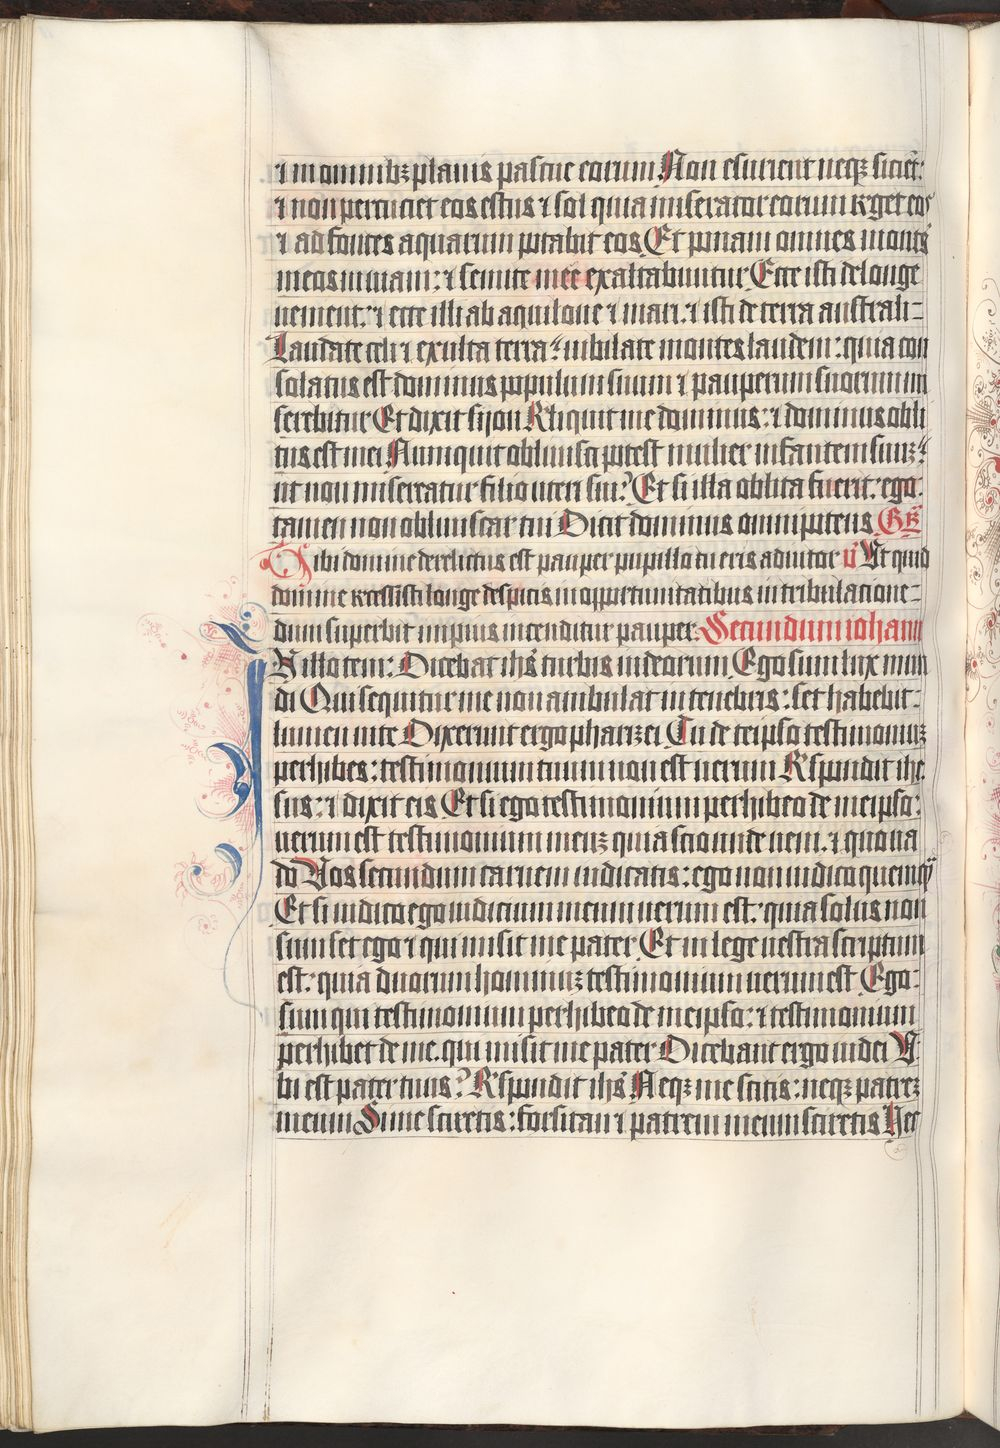 ⁊ in omnibꝫ planis pascue eorum Non esurient neqꝫ siciēt:
⁊ non percuciet eos estus ⁊ sol quia miserator eorum reget eos
⁊ ad fontes aquarum potabit eos Et ponam omnes montes
meos in uiam: ⁊ semite mee exaltabuntur Ecce isti de longe
uenient: ⁊ ecce illi ab aquilone ⁊ mari: ⁊ isti de terra australi-
Laudate celi ⁊ exulta terra: iubilate montes laudem: quia con
solatus est dominus populum suum ⁊ pauperum suorum mi
serebitur Et dixit sijon Reliquit me dominus: ⁊ dominus obli
tus est mei Numquit obliuisci potest mulier infantem suuꝫ:
ut non misereatur filio uteri sui? Et si illa oblita fuerit: ego
tamen non obliuiscar tui Dicit dominus omnipotens Gr̄
Tibi domine derelictus est pauper pupillo tu eris adiutor v̄ Ut quid
domine recessisti longe despicis in opportunitatibus in tribulacione-
dum superbit impius incenditur pauper. Secundum iohann
In illo tem: Dicebat ihs̄ turbis iudeorum Ego sum lux mun
di Qui sequitur me non ambulat in tenebris: set habebit-
lumen uite Dixerunt ergo pharizei Tu de teipso testimoniuꝫ
perhibes: testimonium tuum non est uerum Respondit ihe
sus: ⁊ dixit eis Et si ego testimonium perhibeo de meipso:
uerum est testimonium meuꝫ quia scio unde ueni. ⁊ quo ua
do Vos secundum carnem iudicatis: ego non iudico quemqꝫ
Et si iudico ego iudicium meum uerum est: quia solus non
sum set ego ⁊ qui misit me pater Et in lege uestra scriptum
est: quia duorum hominuꝫ testimonium uerum est Ego-
sum qui testimonium perhibeo de meipso: ⁊ testimonium
perhibet de me. qui misit me pater Dicebant ergo iudei V
bi est pater tuus? Respondit ihs̄ Neqꝫ me scitis: neqꝫ patreꝫ
meum Si me sciretis: forsitan ⁊ patrem meum sciretis Hec